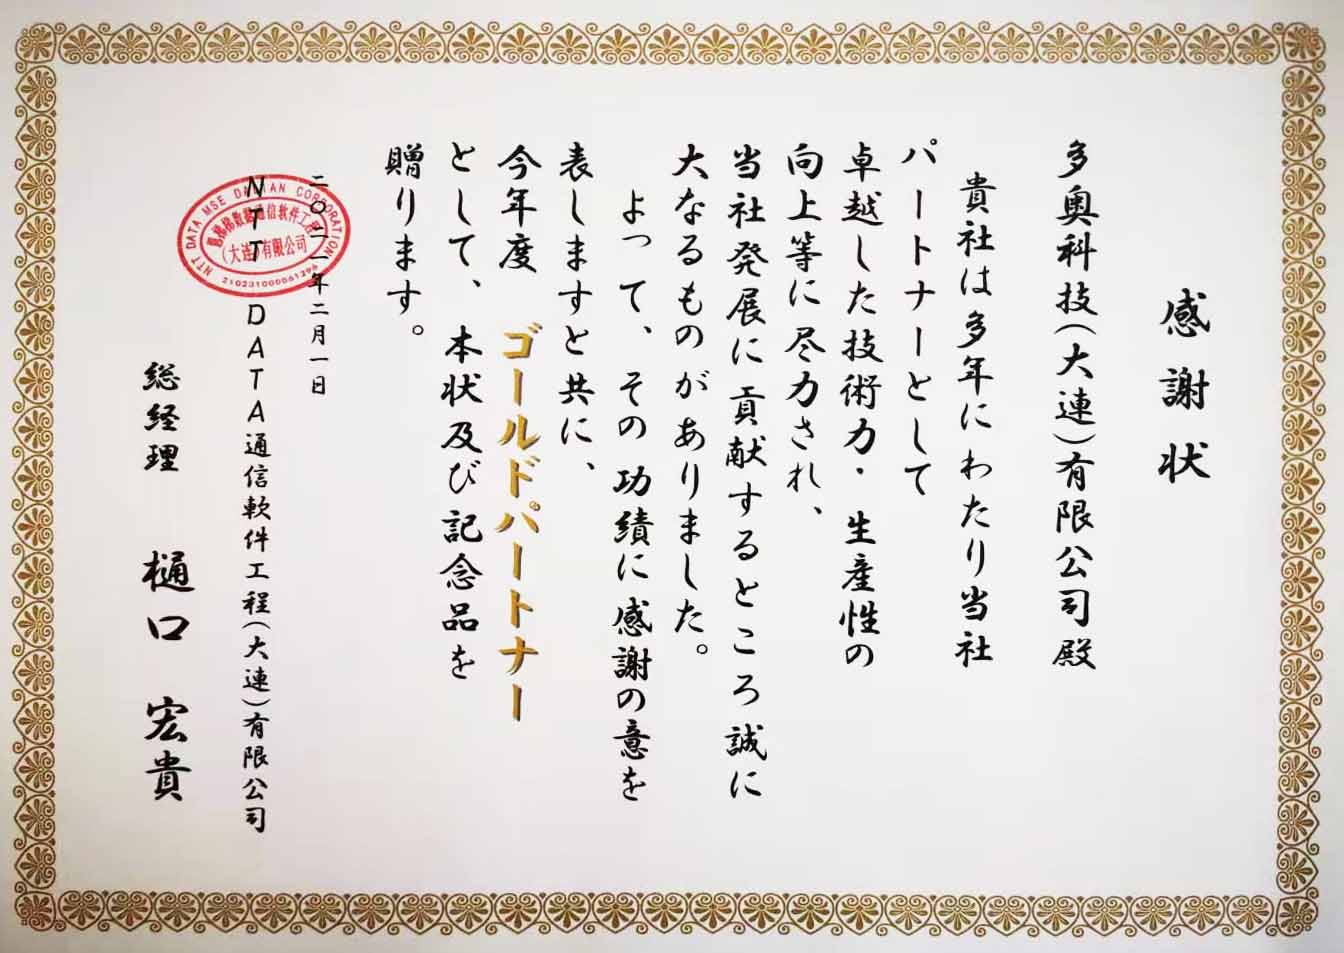 感謝状
多奥科技(大連)有限公司殿
貴社は多年にわたり当社
パートナーとして
卓越した技術力・生産性の
向上等に尽力され、
当社発展に貢献するところ誠に
大なるものがありました。
よって、その功績に感謝の意を
表しますと共に、
今年度 ゴールドパートナー
として、本状及び記念品を
贈ります。
二〇二一年二月一日
NTT DATA通信軟件工程(大連)有限公司
総経理 樋口 宏貴
NTT DATA MSE DALIAN CORPORATION
(大连)有限公司